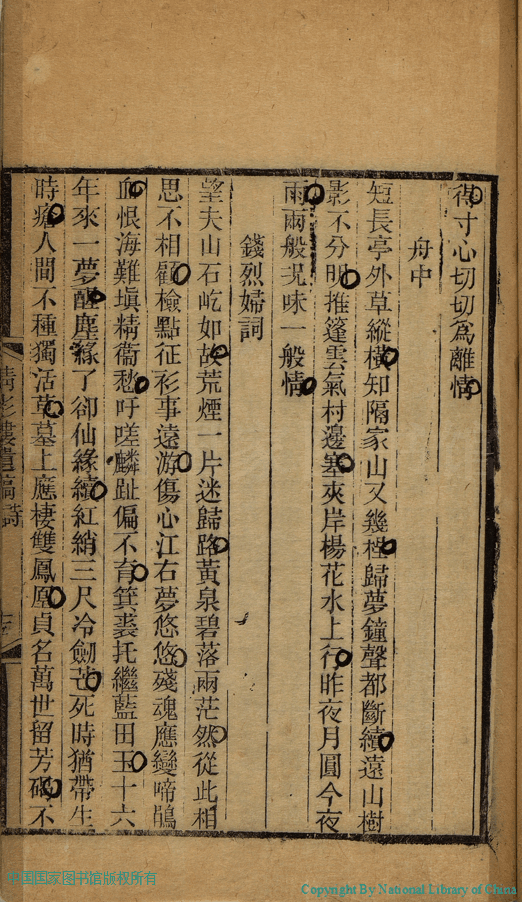 得寸心切切爲離情
舟中
短長亭外草縱橫知隔家山又幾程歸夢鐘聲都斷續遠山樹
影不分明推篷雲氣村邊塞夾岸楊花水上行昨夜月圓今夜
雨兩般況味一般情
錢烈婦詞
望夫山石屹如故荒煙一片迷歸路黃泉碧落兩茫然從此相
思不相顧檢點征衫事遠游傷心江右夢悠悠殘魂應變啼鵑
血恨海難塡精衞愁吁嗟麟趾偏不育箕裘托繼藍田玉十六
年來一夢醒塵緣了卻仙緣續紅綃三尺冷劒芒死時猶帶生
時瘡人間不種獨活草墓上應棲雙鳳凰貞名萬世留芳碣不
影樓遺稿 詩
中国国家图书馆版权所有
Copyright By National Library of China